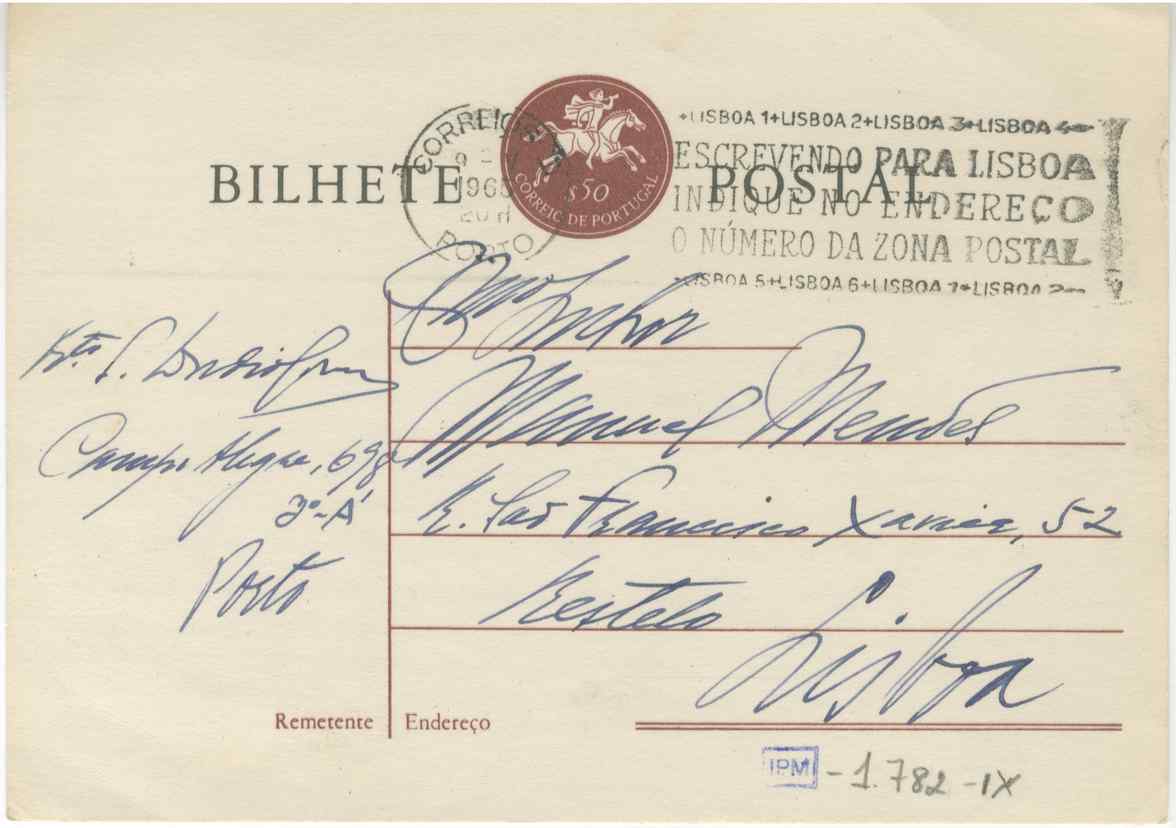 BILHETE POSTAL
CORREIOS
1965
20 H
PORTO
$50
CORREIO DE PORTUGAL
+LISBOA 1+LISBOA 2+LISBOA 3+LISBOA 4
ESCREVENDO PARA LISBOA
INDIQUE NO ENDEREÇO
O NÚMERO DA ZONA POSTAL
LISBOA 5+LISBOA 6+LISBOA 7+LISBOA
Exmo Senhor
Manuel Mendes
R. São Francisco Xavier, 52
Restelo
Lisboa
Campo Alegre, 698
3º-A
Porto
Remetente
Endereço
IPM - 1.782 - IX